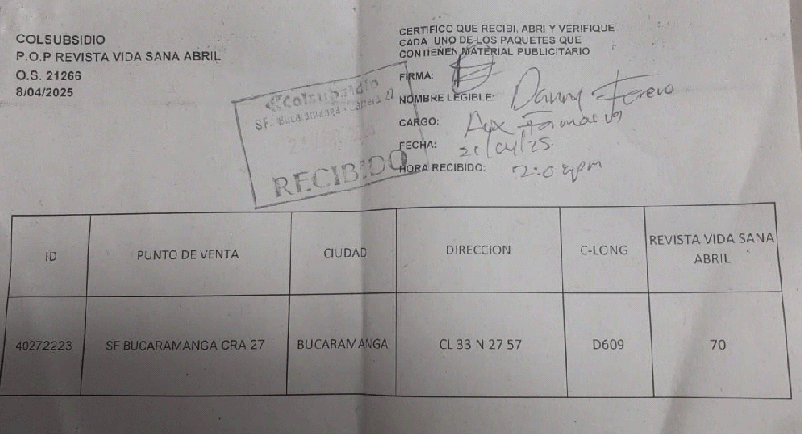 COLSUBSIDIO
P.O.P REVISTA VIDA SANA ABRIL
O.S. 21266
8/04/2025
CERTIFICO QUE RECIBI, ABRI Y VERIFIQUE
CADA UNO DE LOS PAQUETES QUE
CONTIENEN MATERIAL PUBLICITARIO
FIRMA:
NOMBRE LEGIBLE: Danny Forero
CARGO: Aux Farmacia
FECHA: 21/04/25
HORA RECIBIDO:
Colsubsidio
SF. Bucaramanga - Carrera 27
RECIBIDO
ID PUNTO DE VENTA CIUDAD DIRECCION C-LONG REVISTA VIDA SANA
ABRIL
40272223 SF BUCARAMANGA CRA 27 BUCARAMANGA CL 33 N 27 57 D609 70